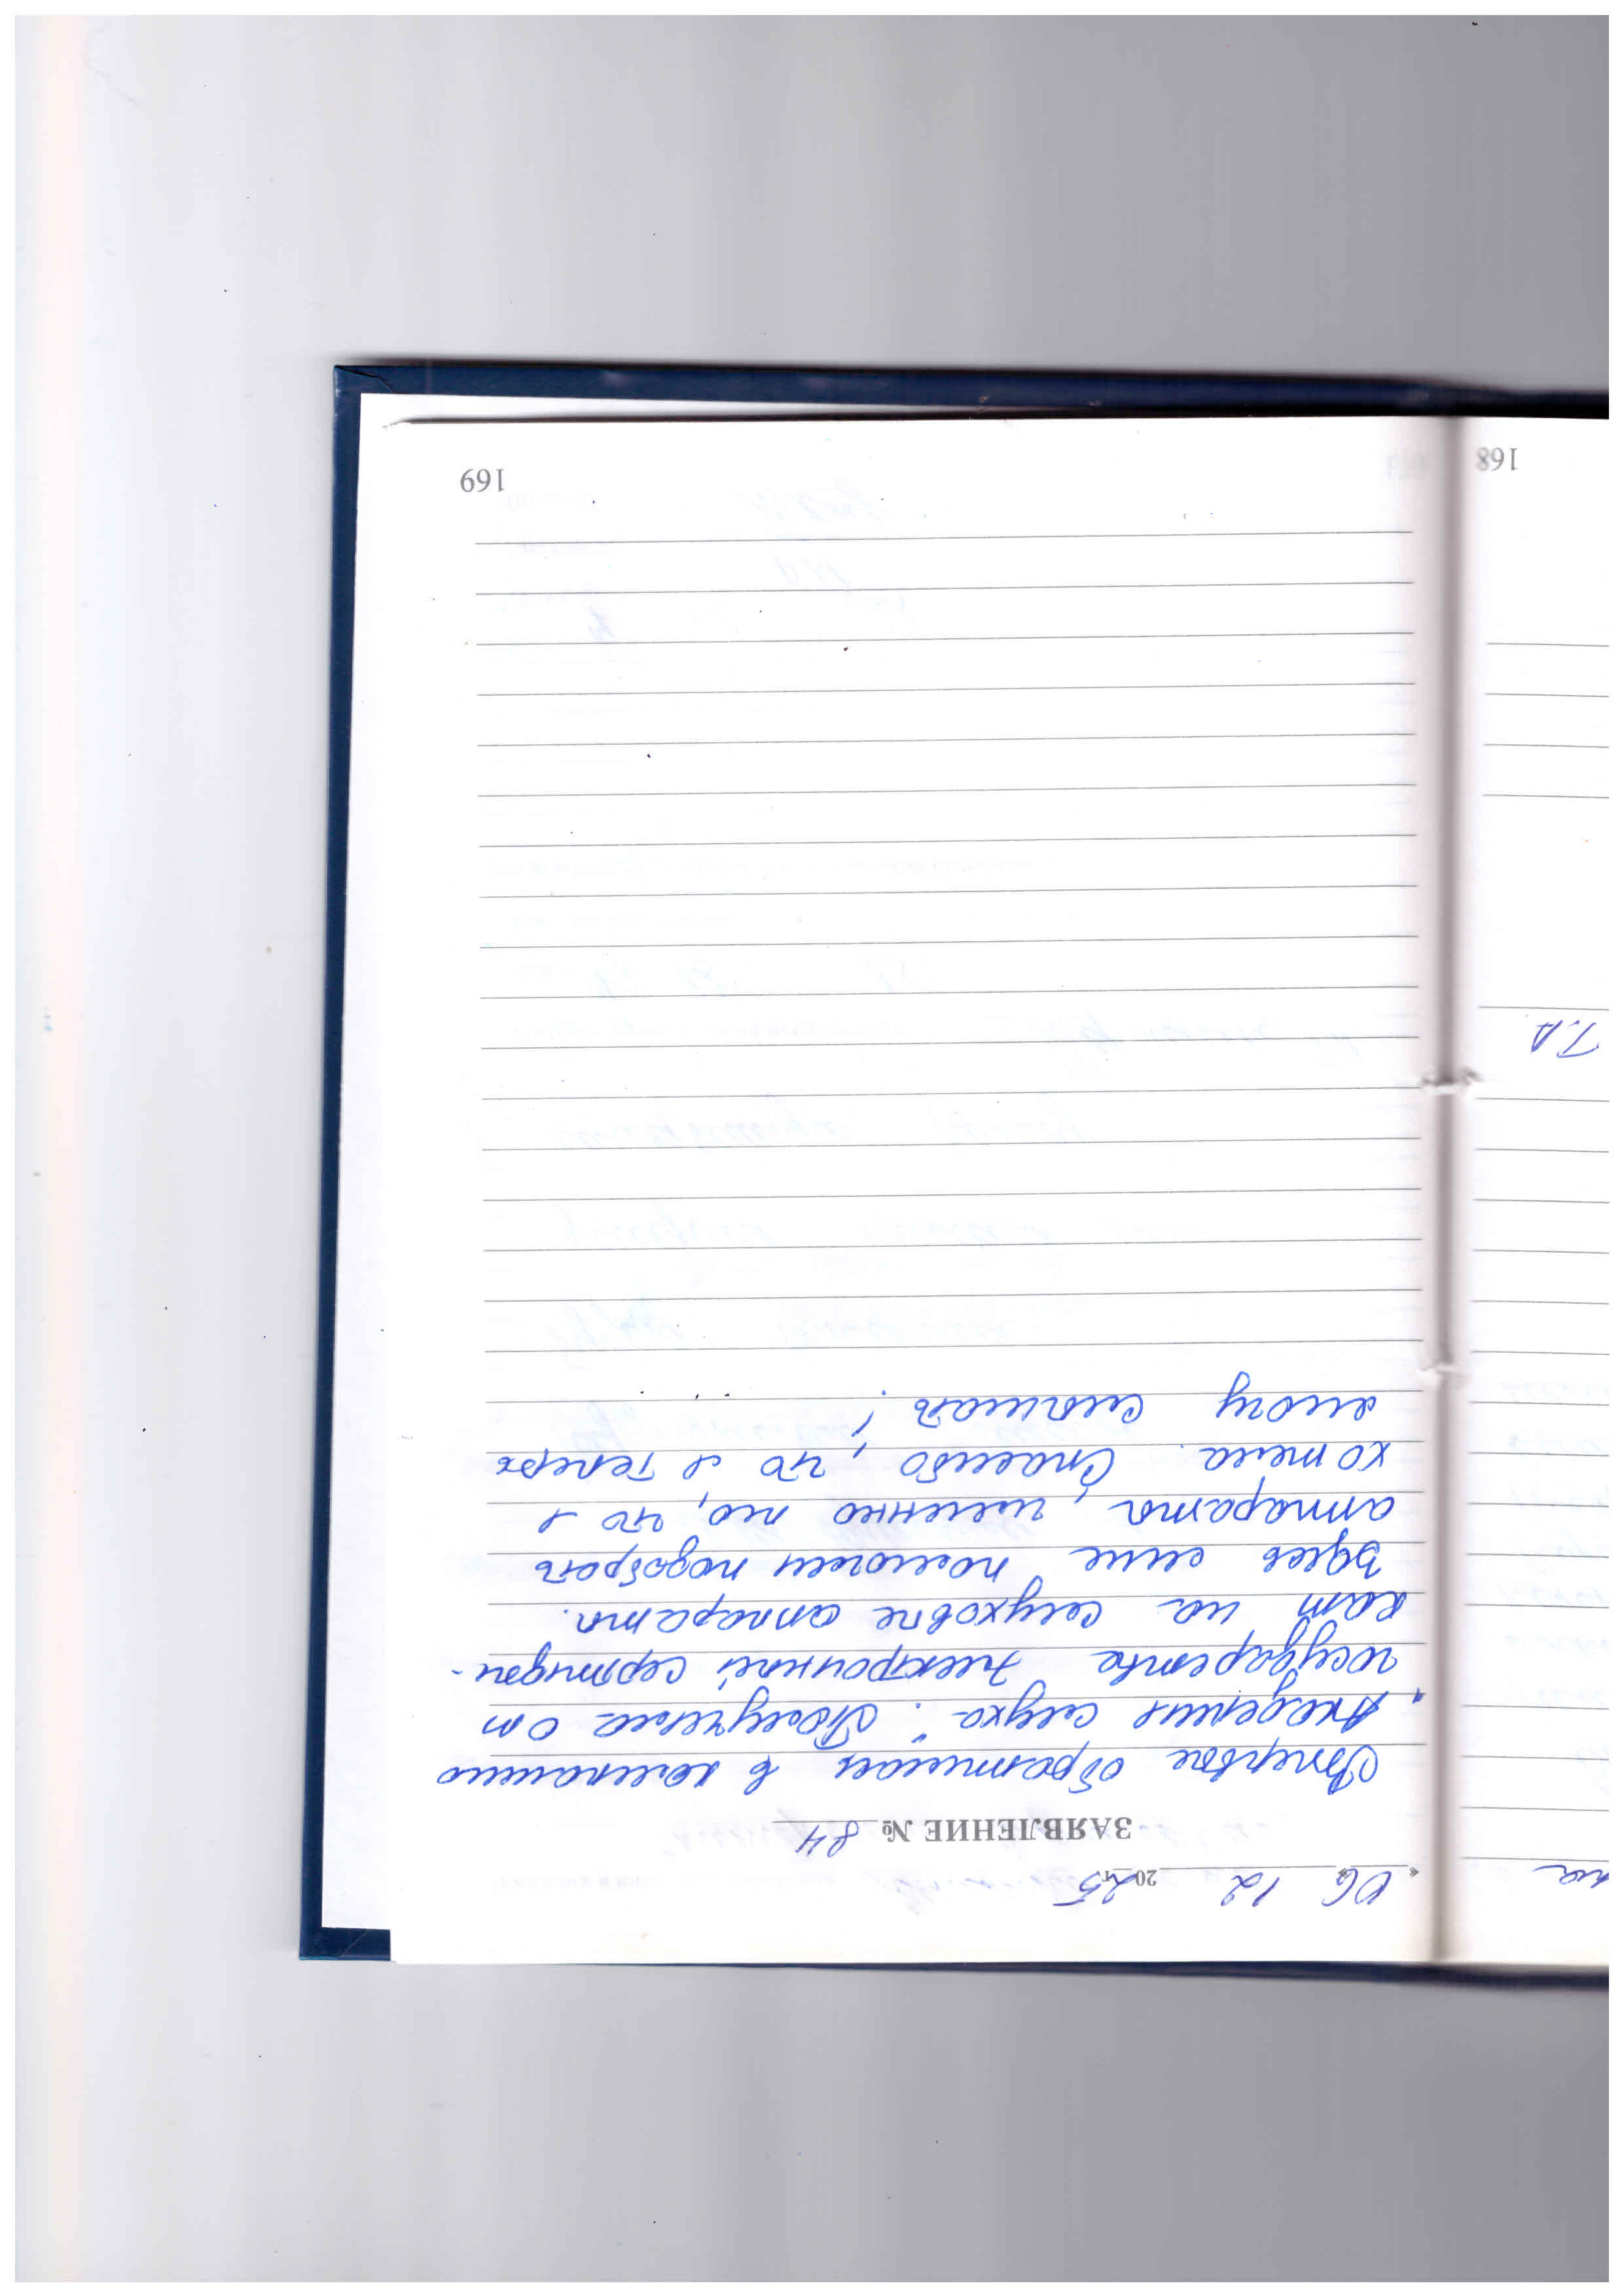 « 06 » 12 2025 г.
ЗАЯВЛЕНИЕ № 84
Впервые обратилась в компанию
"Академия слуха". Получила от
государства электронный сертифи-
кат на слуховые аппараты.
Здесь мне помогли подобрать
аппараты, именно то, что я
хотела. Спасибо, что я теперь
могу слышать!
169
на
Т.А
168